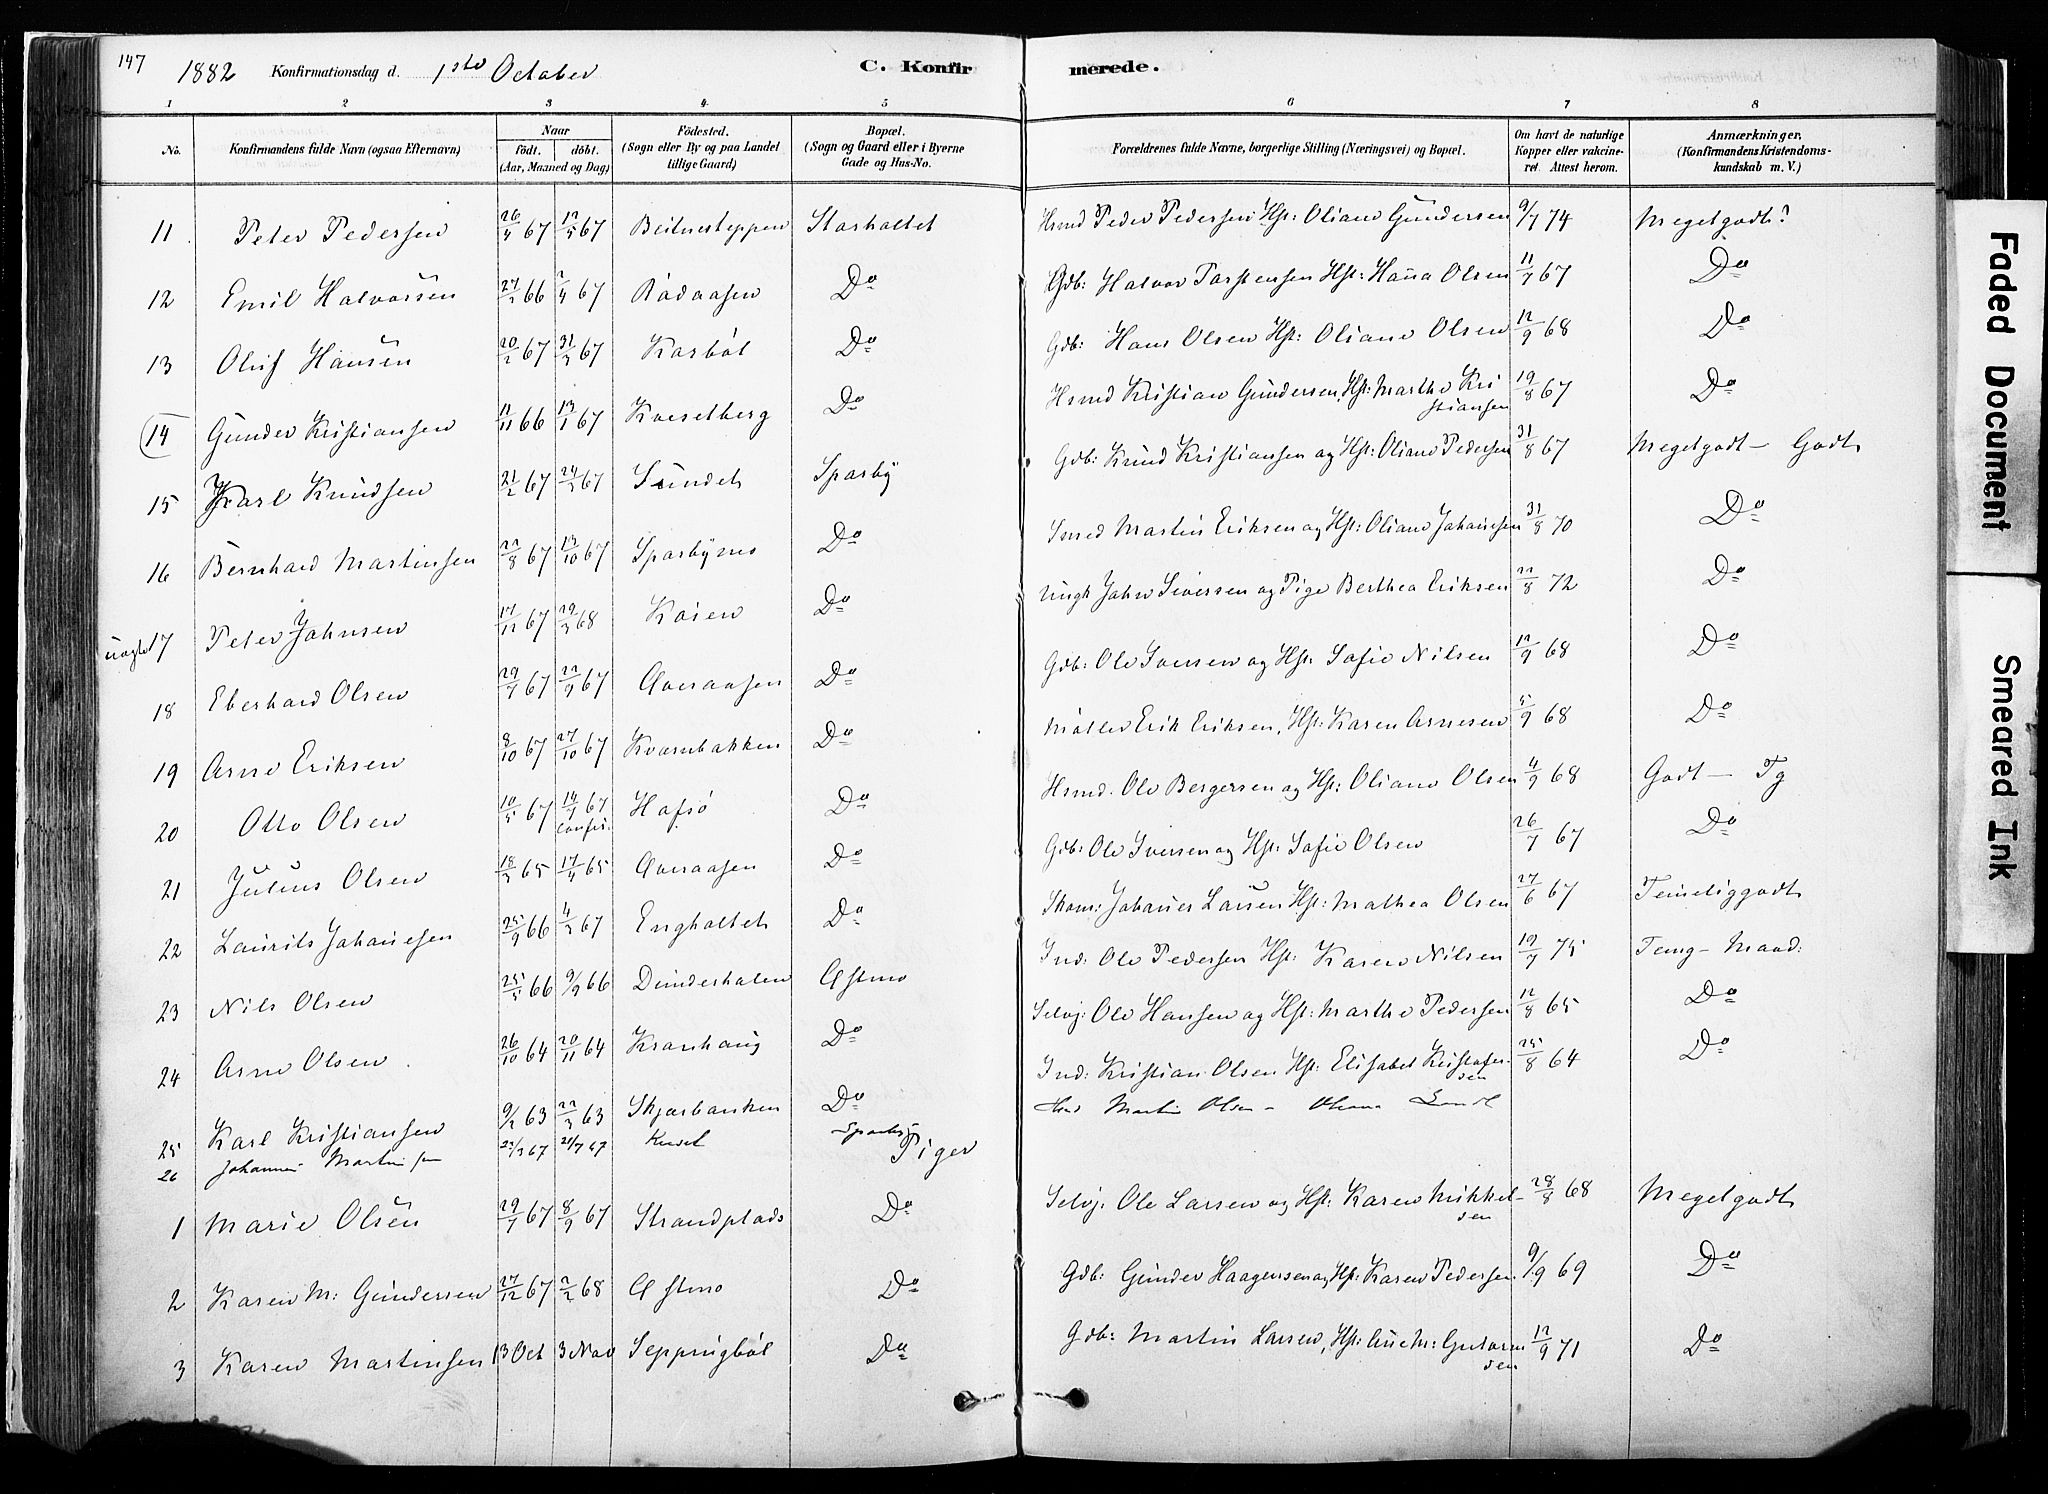 147 1882 Konfirmationsdag d. 1ste October C. Konfirmerede.
1 2 3 4 5 6 7 8
No. Konfirmandens fulde Navn (ogsaa Efternavn) Naar födt. döbt. (Aar, Maaned og Dag) Födested. (Sogn eller By og paa Landet tillige Gaard) Bopæl. (Sogn og Gaard eller i Byerne Gade og Hus-No. Forældrenes fulde Navne, borgerlige Stilling (Næringsvei) og Bopæl. Om havt de naturlige Kopper eller vakcineret. Attest herom. Anmærkninger. (Konfirmandens Kristendomskundskab m. V.)
11 Peter Pedersen 26/4 67 12/5 67 Hsmd Peder Pedersen Hst: Oliane Gundersen 9/7 74 Megetgodt?
12 Emil Halvorsen 66 67 Rödaasen Do Gdb: Halvor Torstensen Hst: Hanna Olsen 11/7 67 Do
13 Oluf Hansen 20/2 67 31/3 67 Karböl Do Gdb: Hans Olsen Hst: Oliane Olsen 12/9 68 Do
14 Gunder Kristiansen 11/11 66 13/1 67 Kveselberg Do Hsmd Kristian Gundersen, Hst: Marthe Kristiansen 19/8 67 Do
15 Karl Knudsen 21/2 67 24/3 67 Sundet Sparby Gdb: Knud Kristiansen og Hst: Oliane Pedersen 31/8 67 Megetgodt - Godt
16 Bernhard Martinsen 22/8 67 13/10 67 Do Smed Martin Eriksen og Hst: Oliane Johannesen 31/8 70 Do
uægte 17 Peter Johnsen 17/12 67 29/3 68 Koien Do Ungk John Siversen og Pige Berthea Eriksen 22/8 72 Do
18 Eberhard Olsen 29/7 67 22/9 67 Overaasen Do Gdb: Ole Iversen og Hst: Sofie Nilsen 12/9 68 Do
19 Arne Eriksen 8/10 67 27/10 67 Kvernbakken Do Möller Erik Eriksen, Hst: Karen Arnesen 5/9 68 Do
20 Otto Olsen 10/5 67 14/7 67 Hafsö Do Hsmd. Ole Bergersen og Hst: Oliane Olsen 4/9 68 Godt - Tg
21 Julius Olsen 18/3 65 17/4 65 Overaasen Do Gdb: Ole Iversen og Hst: Sofie Olsen 26/7 67 Do
22 Laurits Johannesen 25/9 66 4/3 67 Engholtet Do Skom: Johannes Larsen Hst: Mathea Olsen 27/6 67 Temeliggodt
23 Nils Olsen 25/5 66 9/9 66 Dunderhalen Astmo Ind: Ole Pedersen Hst: Karen Nilsen 19/7 75 Temg - Maad:
24 Arne Olsen 26/10 64 20/11 64 Kranhaug Do Selvj: Ole Hansen og Hst: Marthe Pedersen 12/8 65 Do
25 Karl Kristiansen 9/2 63 22/3 63 Skjærbanken Do Ind: Kristian Olsen Hst: Elisabet Kristofersen 25/8 64 Do
26 Johannes Martinsen 67 Sparby Martin Olsen -
Piger
1 Marie Olsen 29/7 67 8/9 67 Strandplads Do Selvj: Ole Larsen og Hst: Karen Mikkelsen 28/8 68 Megetgodt
2 Karen M: Gundersen 27/12 67 2/2 68 Astmo Do Gdb: Gunder Haagensen og Hst: Karen Pedersen 9/9 69 Do
3 Karen Martinsen 13 Oct 3 Nov Seppingböl Do Gdb: Martin Larsen, Hst: 12/9 71 Do
Faded Document
Smeared Ink